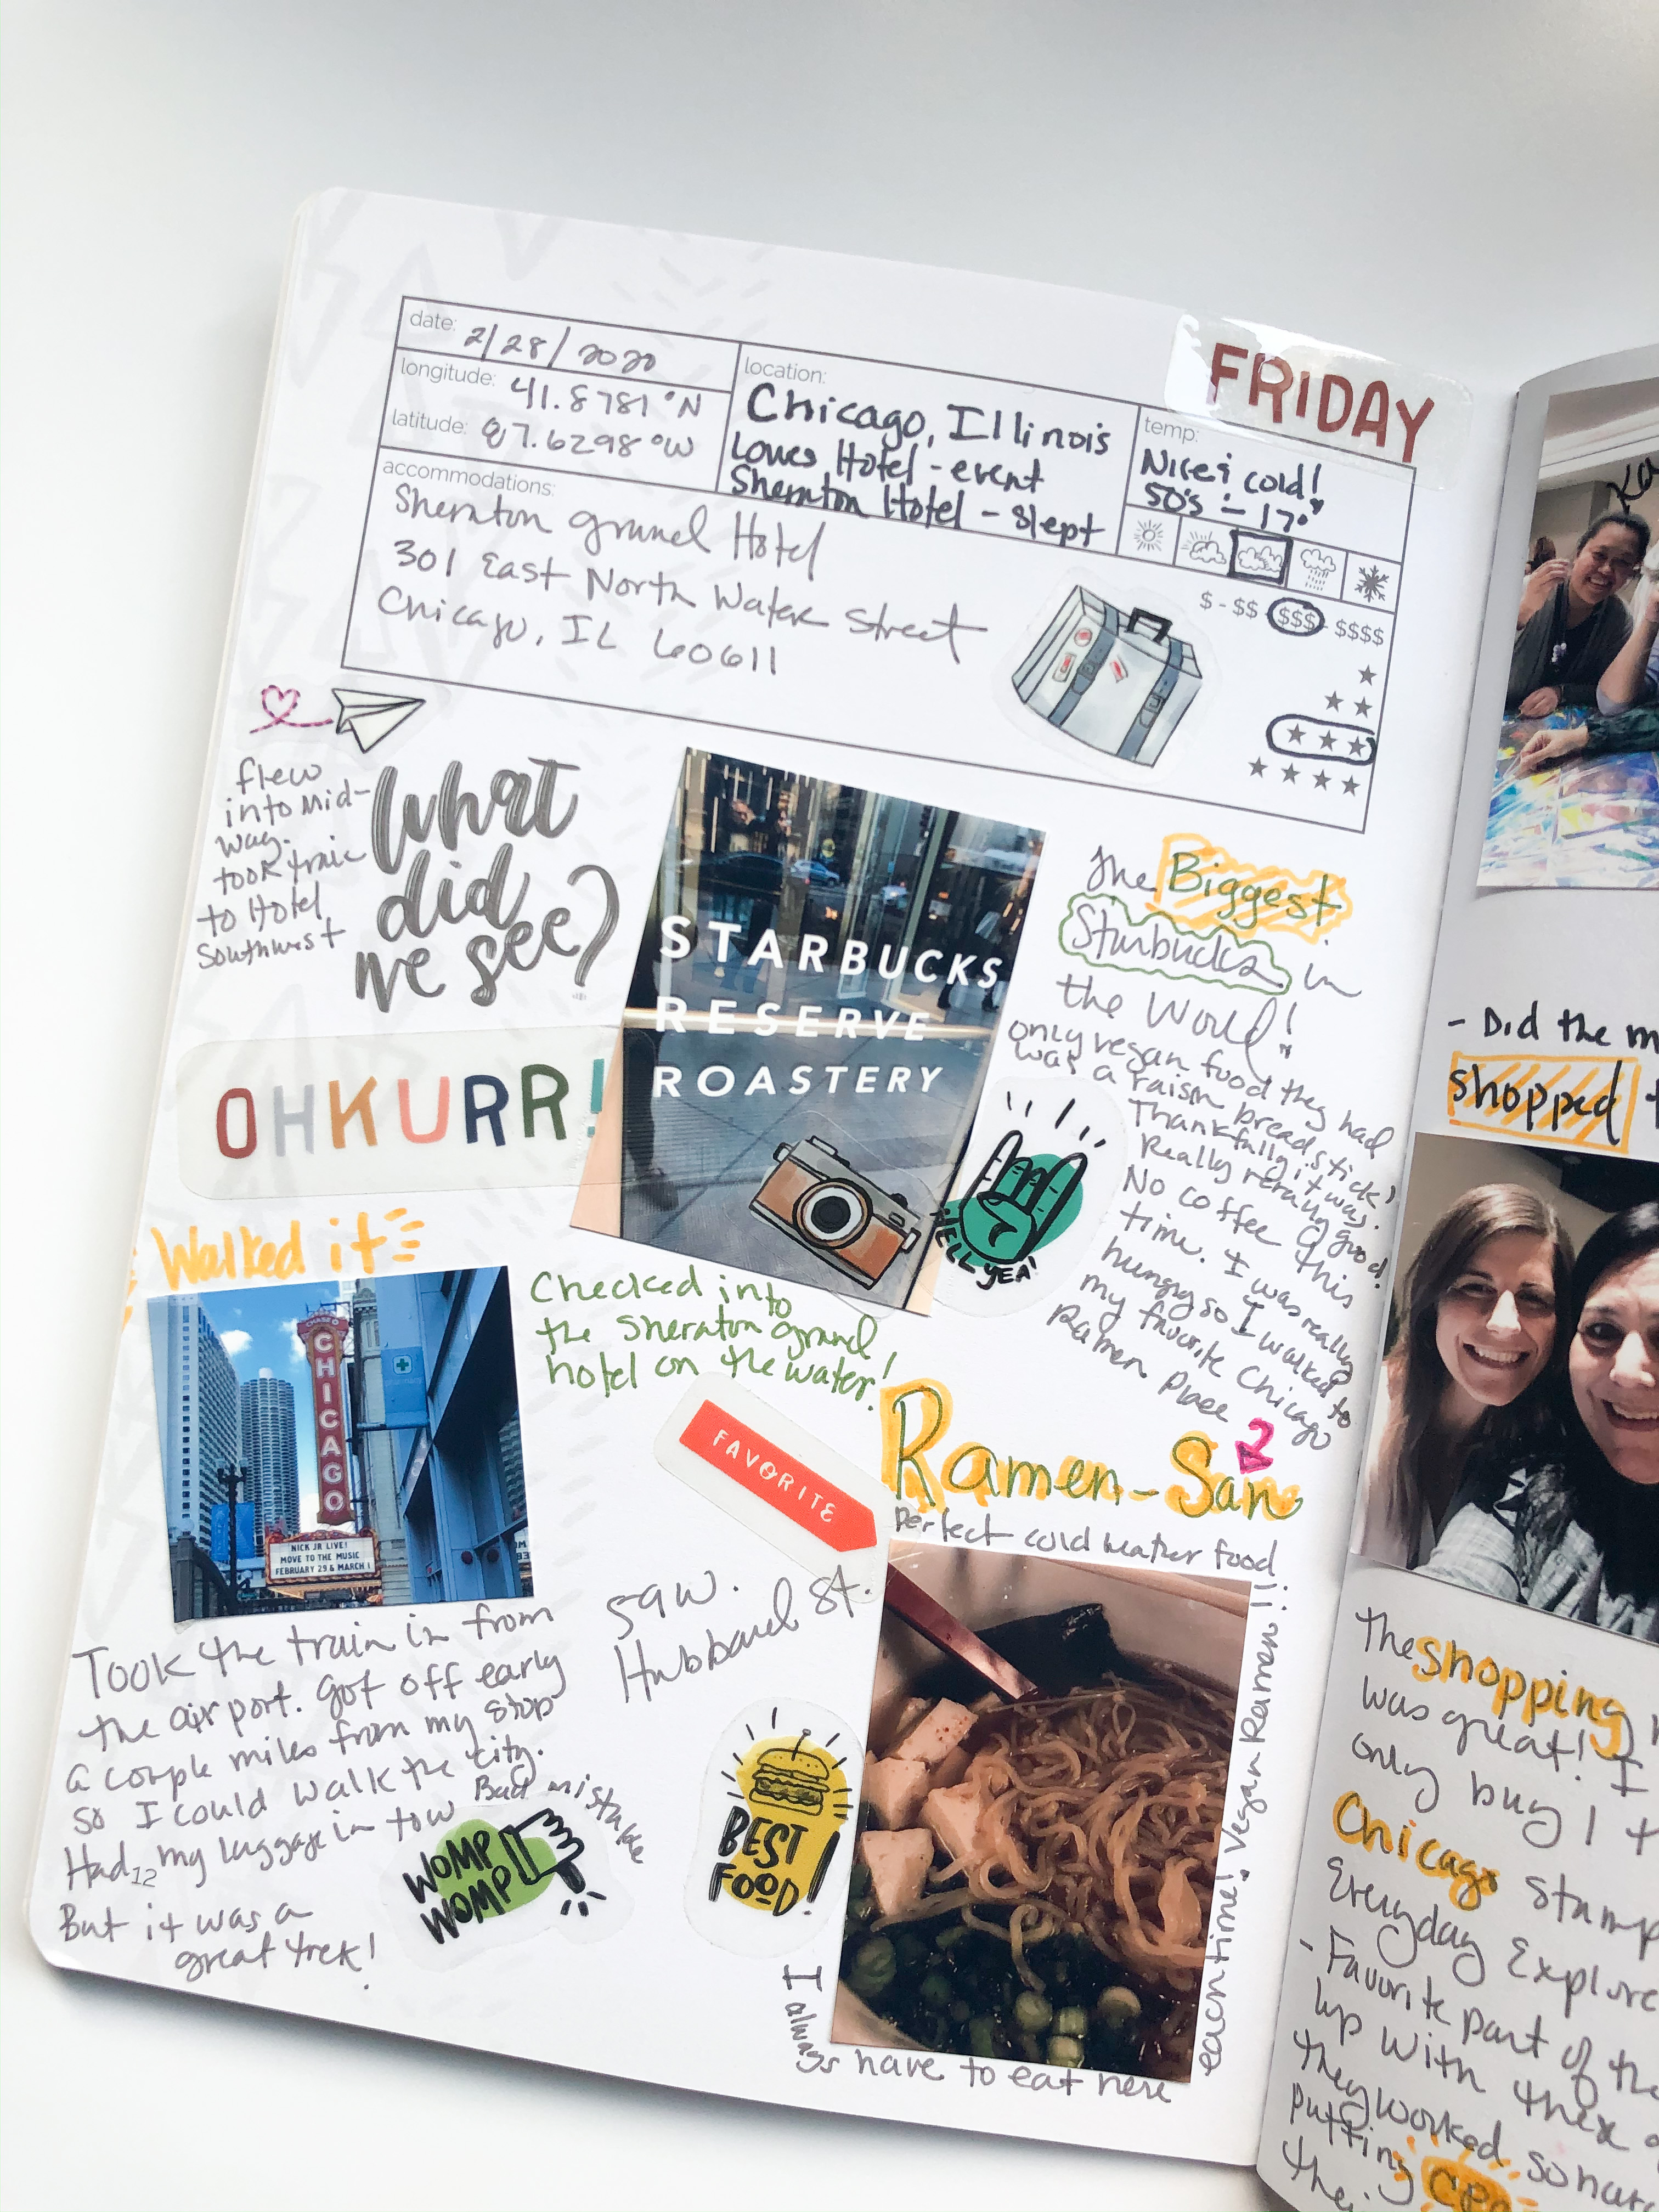 FRIDAY
date: 2/28/2020
longitude: 41.8781°N
latitude: 87.6298°W
location:
Chicago, Illinois
Lowes Hotel - event
Sheraton Hotel - slept
temp:
Nice & cold!
50's - 17°
accommodations:
Sheraton grand Hotel
301 East North Water Street
Chicago, IL 60611
$ - $$ - $$$ - $$$$
flew
into Mid-
way.
took train
to Hotel
Southwest
What
did
we see?
STARBUCKS
RESERVE
ROASTERY
The Biggest
Starbucks in
the World!
only vegan food they had
was a raisin bread stick!
Thankfully it was.
Really really good!
No coffee this
time. I was really
hungry so I walked to
my favorite Chicago
Ramen Place
OHKURR!
HELL YEA!
Walked it
CHASE
CHICAGO
NICK JR LIVE!
MOVE TO THE MUSIC
FEBRUARY 29 & MARCH 1
Checked into
the Sheraton grand
hotel on the water!
FAVORITE
Ramen-San
Perfect cold weather food
saw.
Hubbard St.
Took the train in from
the airport. Got off early
a couple miles from my stop
so I could walk the city.
Had my luggage in tow Bad mistake
12
But it was a
great trek!
WOMP
WOMP
BEST
FOOD!
I always have to eat here
each time! Vegan Ramen!!
- Did the m
shopped t
The shopping
was great! I
only buy 1 t
Chicago Stamp
Everyday Explore
- Favorite part of the
up with these
they worked so hard
putting
their